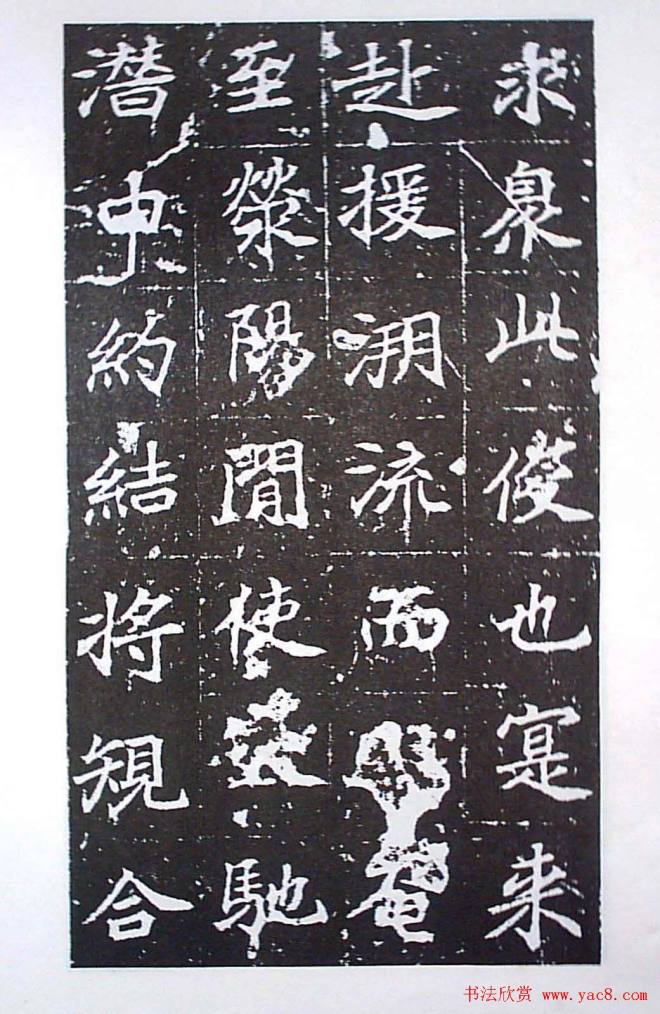 求泉此後也寔来
赴援泝流而
至滎陽間使 馳
潜申約結将規合
书法欣赏 www.yac8.com